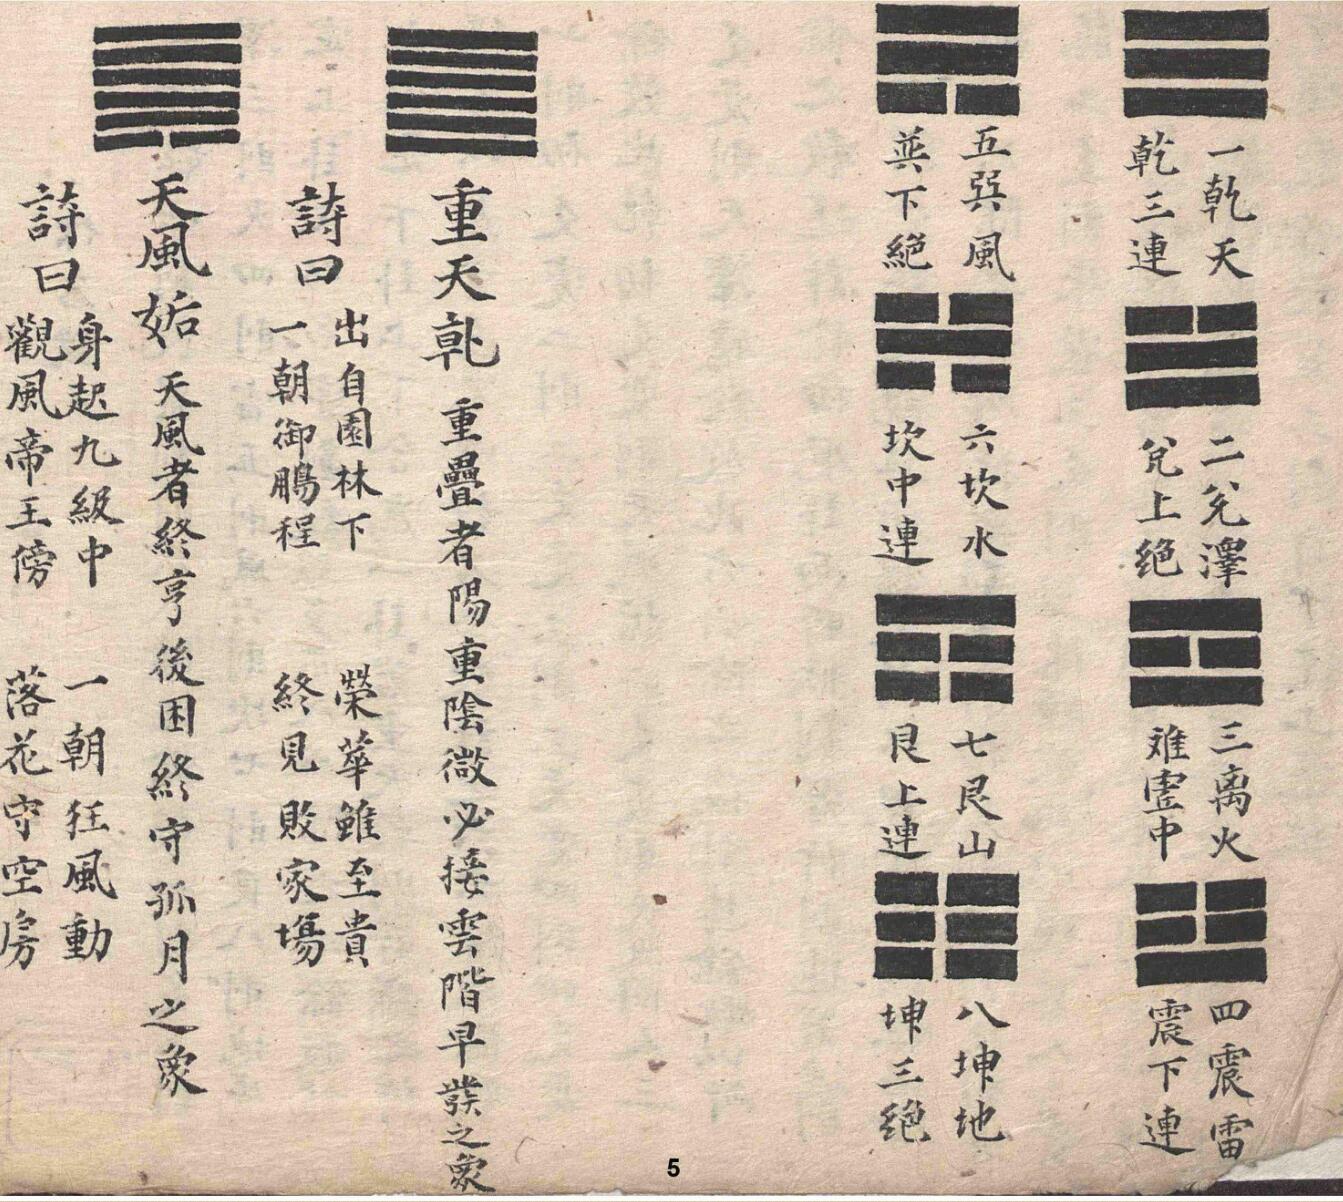 一乾天
乾三連
二兌澤
兌上绝
三离火
难虛中
四震雷
震下連
五巽風
巽下絕
六坎水
坎中連
七艮山
艮上連
八坤地
坤三绝
重天乹
重疊者陽重陰微必接雲階早發之象
詩曰
出自園林下
一朝御鵬程
榮華雖至貴
終見敗家場
天風姤
天風者終亨後困終守孤月之象
詩曰
身起九級中
觀風帝王傍
一朝狂風動
落花守空房
5